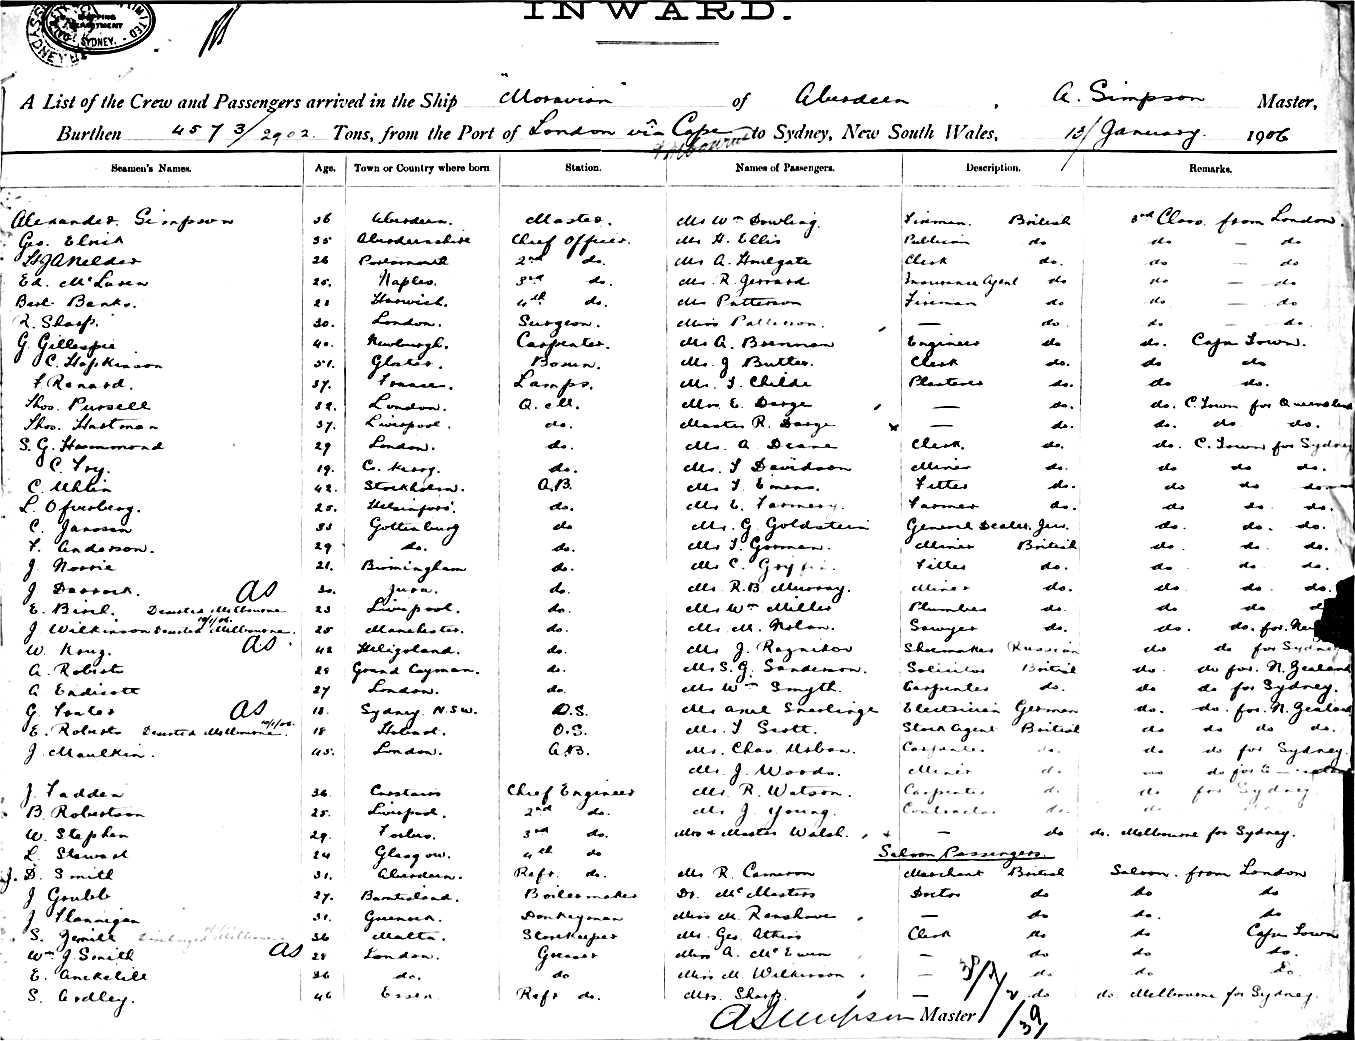 LIMITED
SHIPPING
DEPARTMENT
SYDNEY.
INWARD.
A List of the Crew and Passengers arrived in the Ship "Moravian" of Aberdeen, A. Simpson Master,
Burthen 4573/2902 Tons, from the Port of London via Cape & Melbourne to Sydney, New South Wales, 13/ January 1906
Seamen's Names. Age. Town or Country where born Station. Names of Passengers. Description. Remarks.
Alexander Simpson 56 Aberdeen. Master. Mr Wm Dowling. Fireman. British 3rd Class from London.
Geo. Elrick 35 Aberdeenshire Chief Officer. Mr H. Ellis do do — do
26 Portsmouth 2nd do. Mr A. Howlgate Clerk do. do — do
Ed. McLaren 25. Naples. 3rd do. Mr R. Gerrard Insurance Agent do do — do
Banks. Harwich. 4th do. Mr Patterson Fireman do do — do
R. Sharp. 30. London. Surgeon. Miss Patterson. — do. do — do.
G. Gillespie 40. Newburgh. Carpenter. Mr A. Brennan Engineer do do. Cape Town.
C. Hopkinson 51. Gloster. Bosun. Mr J Butler. Clerk do. do do
F. Renard. 37. France. Lamps. Mr. T. Childe Plasterer do. do do.
Thos. Pursell 32. London. Q. M. Mrs E. Darge — do. do. C. Town for Queensland
Thos. Hartman 37. Liverpool. do. Master R. Darge — do. do. do. do.
S. G. Hammond 29 London. do. Mr. A Deane Clerk. do. do. C. Town for Sydney
C. Fry. 19. Co. Kerry. do. Mr. T Davidson Miner do. do do do.
C. Uhlin 42. Stockholm. A.B. Mr T. Emens. Fitter do. do do do
L. Ofverberg. 25. Helsinfors. do. Mr E. Farmery. Farmer do. do do. do.
C. Janssen 33 Gottenburg do Mr. G. Goldstein General Dealer. do. do. do.
F. Anderson. 29 do. do. Mr T. Gorman. Miner British do. do do.
J Norrie 21. Birmingham do Mr C. Griffin. Fitter do. do do do.
J Darroch. AS 30. Jura. do. Mr R.B Murray. Miner do. do do. do.
E. Bird. Deserted Melbourne 23 Liverpool. do. Mr Wm Miller Plumber do. do do d
J Wilkinson Deserted Melbourne. 10/1/06. 25 Manchester. do. Mr M. Nolan. Sawyer do. do. do. for New
W. Krug. AS 42 Heligoland. do. Mr J. Shoemaker Russian do do for Sydney
A. Roberts 28 Grand Cayman. do. Mr S. G. Sanderson. Solicitor British do. do for N. Zealand
A Endicott 27 London. do. Mr Wm Smyth. Carpenter do. do do for Sydney.
G Foster AS 18. Sydney N.S.W. D.S. Mr Axel Electrician German do. do. for. N. Zealand
E. Roberts Deserted Melbourne. 10/1/06. 18 O.S. Mr. T Scott. Stock Agent British do do do do.
J. Maulkin. 45. London. A.B. Mr. Chas. Carpenter do. do do for Sydney.
Mr. J. Woods. Miner do. do for
J. Fadden 36. Chief Engineer Mr R. Watson. Carpenter do. do for Sydney
B. Robertson 25. Liverpool. 2nd do. Mr J Young. Contractor do. do do
W. Stephen 29. 3rd do. Mrs & Master Walsh. — do do. Melbourne for Sydney.
L. Steward 24 Glasgow. 4th do Saloon Passengers.
J. D. Smith 31. Aberdeen. Refr. do. Mr R. Cameron Merchant British Saloon. from London
J Grubb 27. Burntisland. Boilermaker Dr. McMasters Doctor do do do
J Flannigan 31. Greenock. Donkeyman Miss M. Renshawe — do do. do
S. 36 Malta. Storekeeper Mr. Geo. Atkins Clerk do do Cape Town
Wm J. Smith AS 28 London. Greaser Miss A. McEwen — do do do.
E. 26 do. do Miss M. Wilkinson — do do Do.
S. Ardley. 46 Essex Refr do. Mrs. Sharp. — do do. Melbourne for Sydney.
A Simpson Master